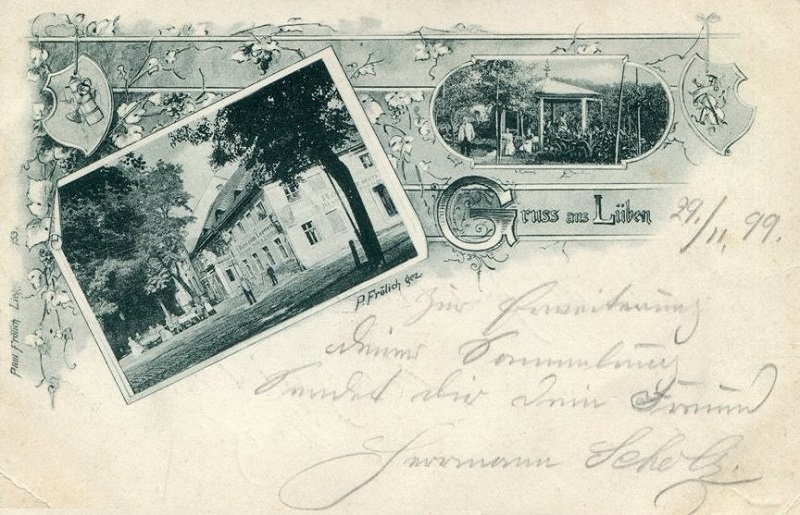 Gruss aus Lüben
29./11. 99.
P. Frölich gez.
Zur Erweiterung
deiner Sammlung
Sendet dir dein Freund
Herrmann Scholz.
Paul Frölich